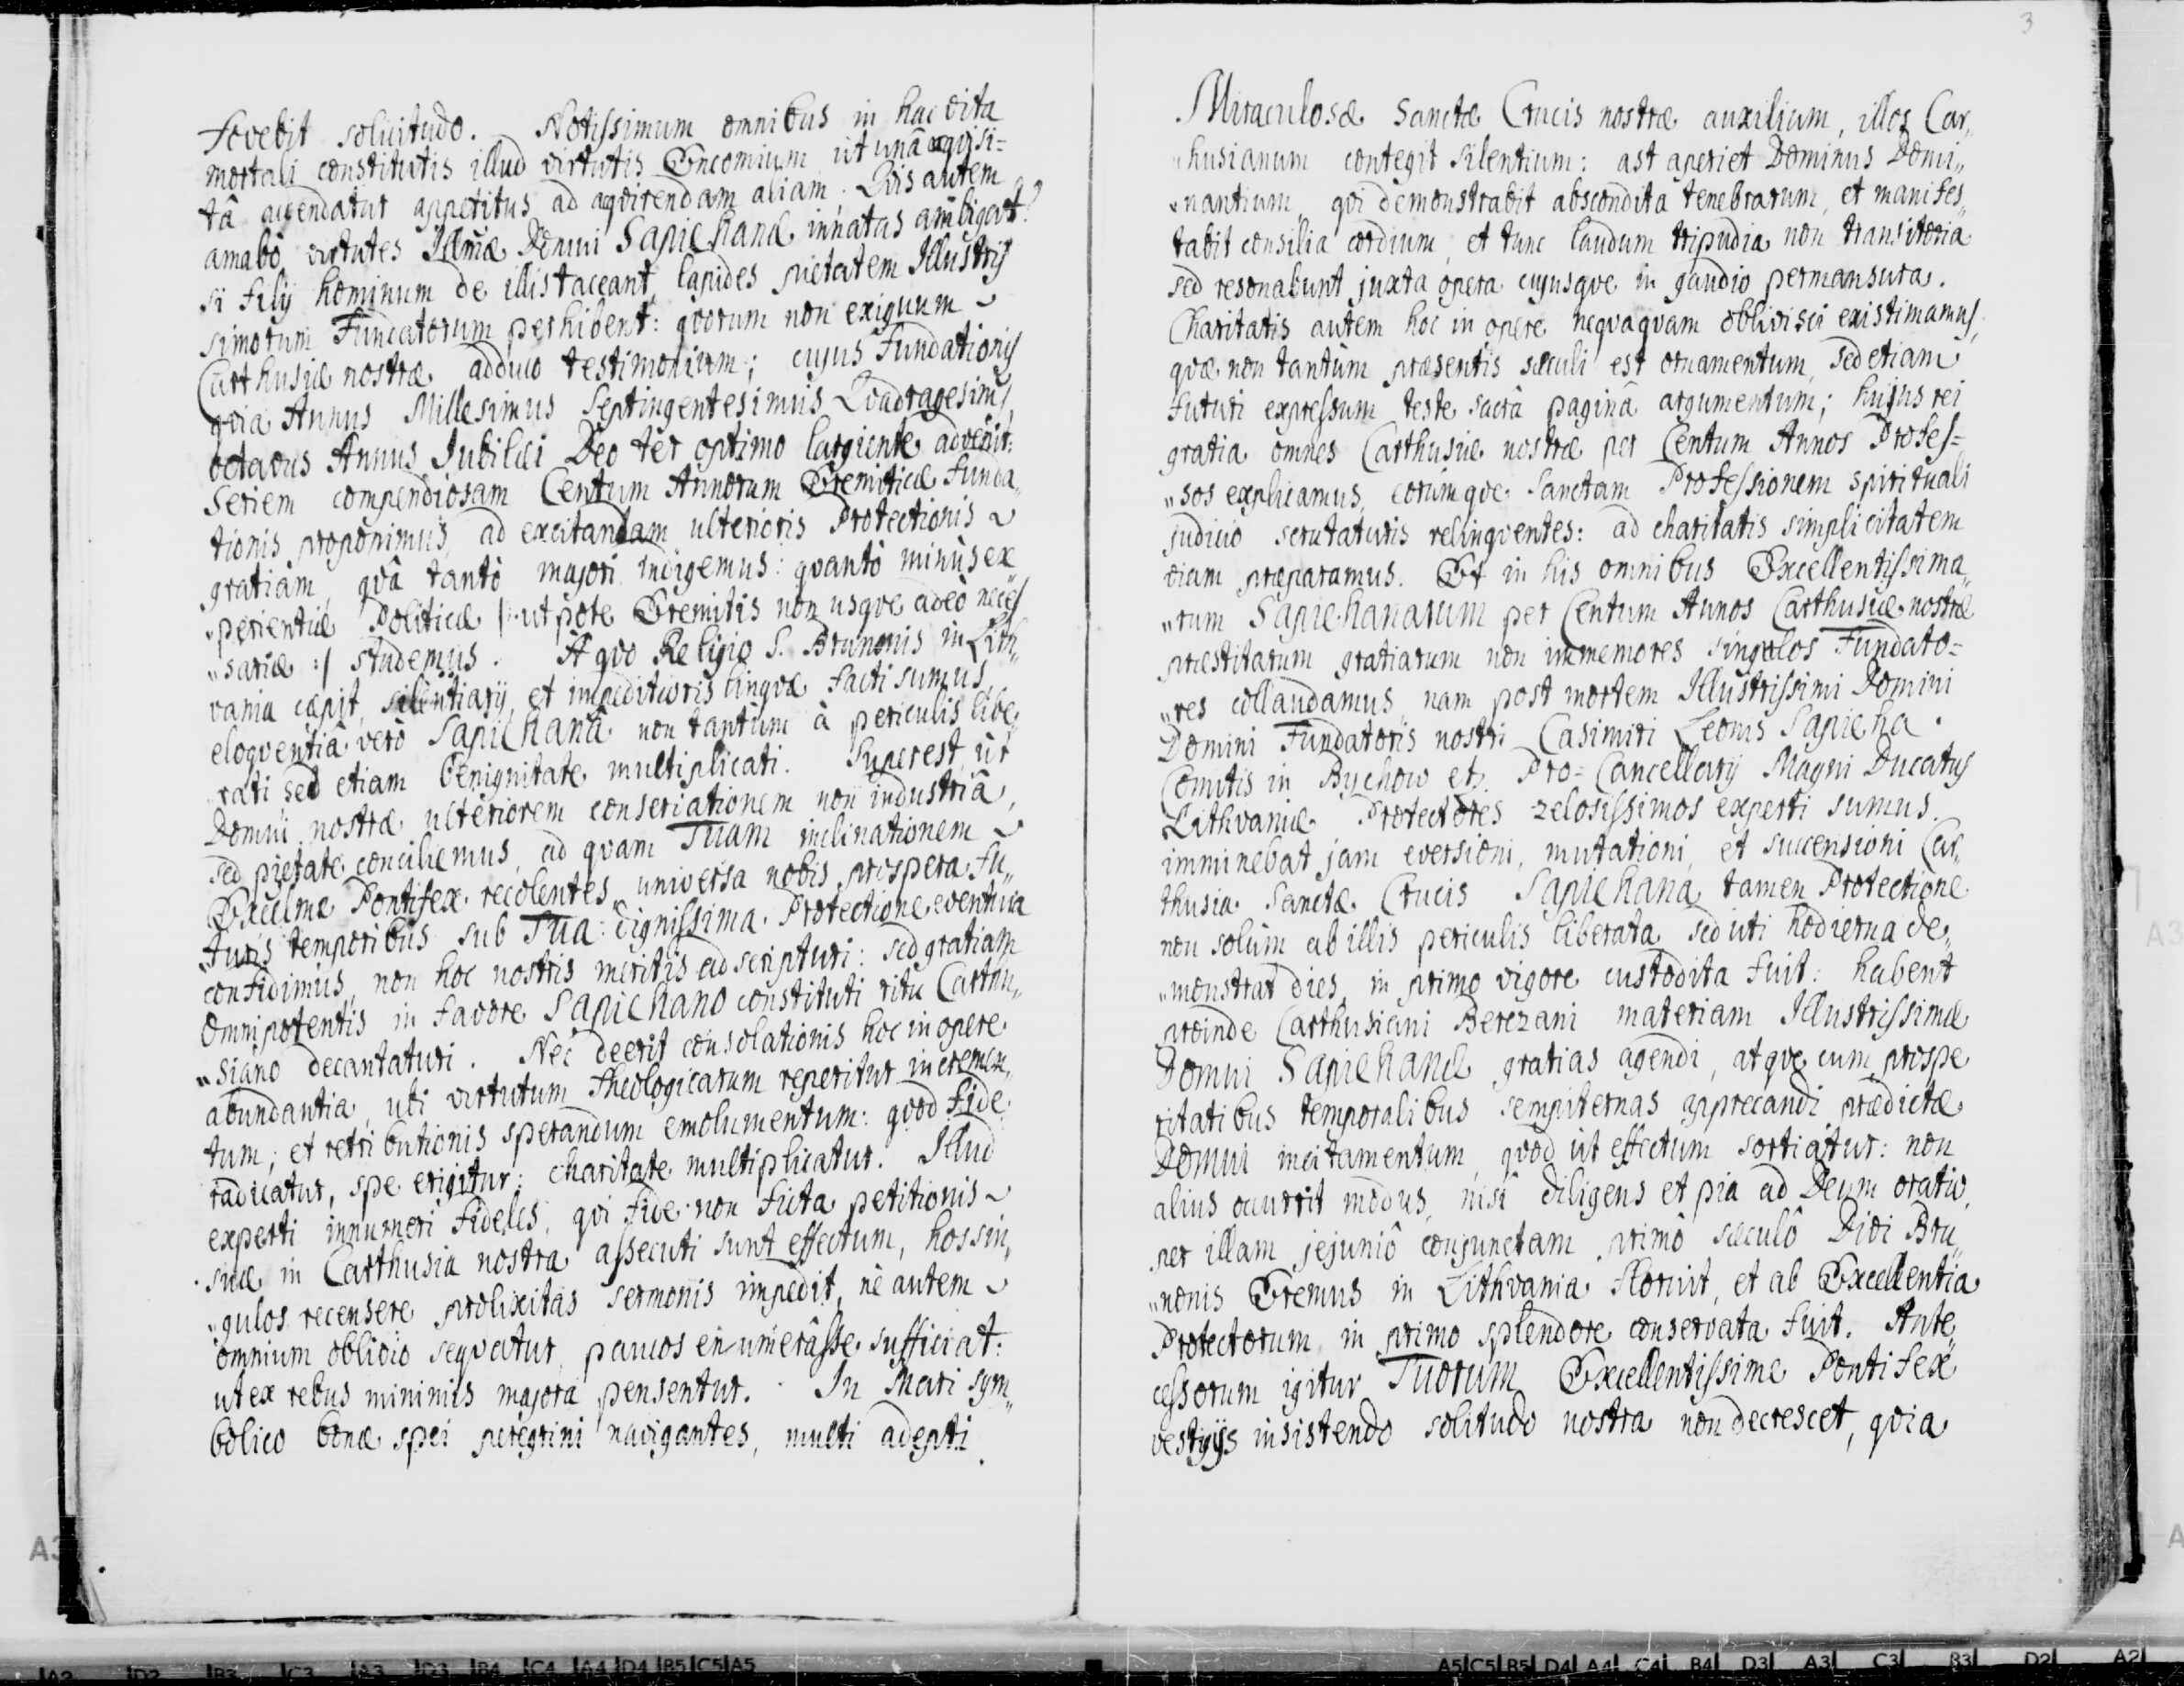 fovebit solicitudo. Notissimum omnibus in hac vita
mortali constitutis illud virtutis Encomium ut unâ aqvisi=
tâ accendatur appetitus ad aqvirendam aliam. Qvis autem
amabo virtutes Illmæ Domui Sapiehanæ innatas ambigat?
si filij hominum de illis taceant, lapides pietatem Illustris
simorum Fundatorum perhibent: qvorum non exiguum
Carthusiæ nostræ adduco testimonium; cujus Fundationis
qvia Annus Millesimus Septingentesimus Qvadragesimus
octavus Annus Jubilæi Deo ter optimo largiente advenit:
Seriem compendiosam Centum Annorum Eremiticæ Funda„
tionis proponimus, ad excitandam ulterioris Protectionis
gratiam, qvâ tantò majori indigemus: qvantò minùs ex
„perientiæ Politicæ /: utpote Eremitis non usqve adeò neces
„sariæ :/ studemus. A qvo Religio S. Brunonis in Lith„
vania cæpit, silentiarij, et impeditioris lingvæ facti sumus
eloqventiâ verò Sapiehanâ non tantùm à periculis libe„
rati sed etiam benignitate multiplicati. Superest, ut
Domui nostræ ulteriorem conservationem non industriâ,
sed pietate conciliemus, ad qvam Tuam inclinationem
Excelme Pontifex recolentes, universa nobis prospera fu„
„turis temporibus sub Tua dignissima Protectione eventura
confidimus, non hoc nostris meritis adscripturi: sed gratiam
Omnipotentis in favore Sapiehano constituti ritu Carthu„
„siano decantaturi. Nec deerit consolationis hoc in opere
abundantia, ubi virtutum Theologicarum reperitur incremen„
tum; et retributionis sperandum emolumentum: qvod fide
radicatur, spe erigitur; charitate multiplicatur. Illud
experti innumeri fideles, qvi fide non ficta petitionis
suæ in Carthusia nostra assecuti sunt effectum, hos sin„
„gulos recensere prolixitas sermonis impedit, nè autem
omnium oblivio seqvatur, paucos enumerâsse sufficiat:
ut ex rebus minimis majora pensentur. In Mari sym„
bolico bonæ spei peregrini navigantes, multi adepti
3
Miraculosæ Sanctæ Crucis nostræ auxilium, illos Car„
„thusianum contegit silentium: ast aperiet Dominus Domi„
„nantium, qvi demonstrabit abscondita tenebrarum, et manifes„
tabit consilia cordium, et tunc laudum tripudia non transitoria
sed resonabunt juxta opera cujusqve in gaudio permansura.
Charitatis autem hoc in opere neqvaqvam oblivisci existimamus,
qvæ non tantùm præsentis sæculi est ornamentum, sed etiam
futuri expressum teste sacrâ paginâ argumentum; hujus rei
gratia omnes Carthusiæ nostræ per Centum Annos Profes=
„sos explicamus, eorumqve Sanctam Professionem spirituali
judicio scrutaturis relinqventes: ad charitatis simplicitatem
viam præparamus. Et in his omnibus Excellentissima„
„rum Sapiehanarum per Centum Annos Carthusiæ nostræ
præstitarum gratiarum non immemores singulos Fundato=
„res collaudamus, nam post mortem Illustrissimi Domini
Domini Fundatoris nostri Casimiri Leonis Sapieha
Comitis in Bychow etc. Pro=Cancellarij Magni Ducatus
Lithvaniæ Protectores zelosissimos experti sumus.
imminebat jam eversioni, mutationi, et succensioni Car„
thusia Sanctæ Crucis Sapiehanâ tamen Protectione
non solùm ab illis periculis liberata, sed uti hodierna de„
„monstrat dies, in primo vigore custodita fuit: habent
proinde Carthusiani Berezani materiam Illustrissimæ
Domui Sapiehanæ gratias agendi, atqve cum prospe
ritatibus temporalibus sempiternas apprecandi prædictæ
Domui incitamentum, qvod ut effectum sortiatur: non
alius occurrit modus, nisi diligens et pia ad Deum oratio,
per illam jejuniô conjunctam primô sæculô Divi Bru„
„nonis Eremus in Lithvania floruit, et ab Excellentia
Protectorum in primo splendore conservata fuit. Ante„
cessorum igitur Tuorum Excellentissime Pontifex
vestigijs insistendo solitudo nostra non decrescet, qvia